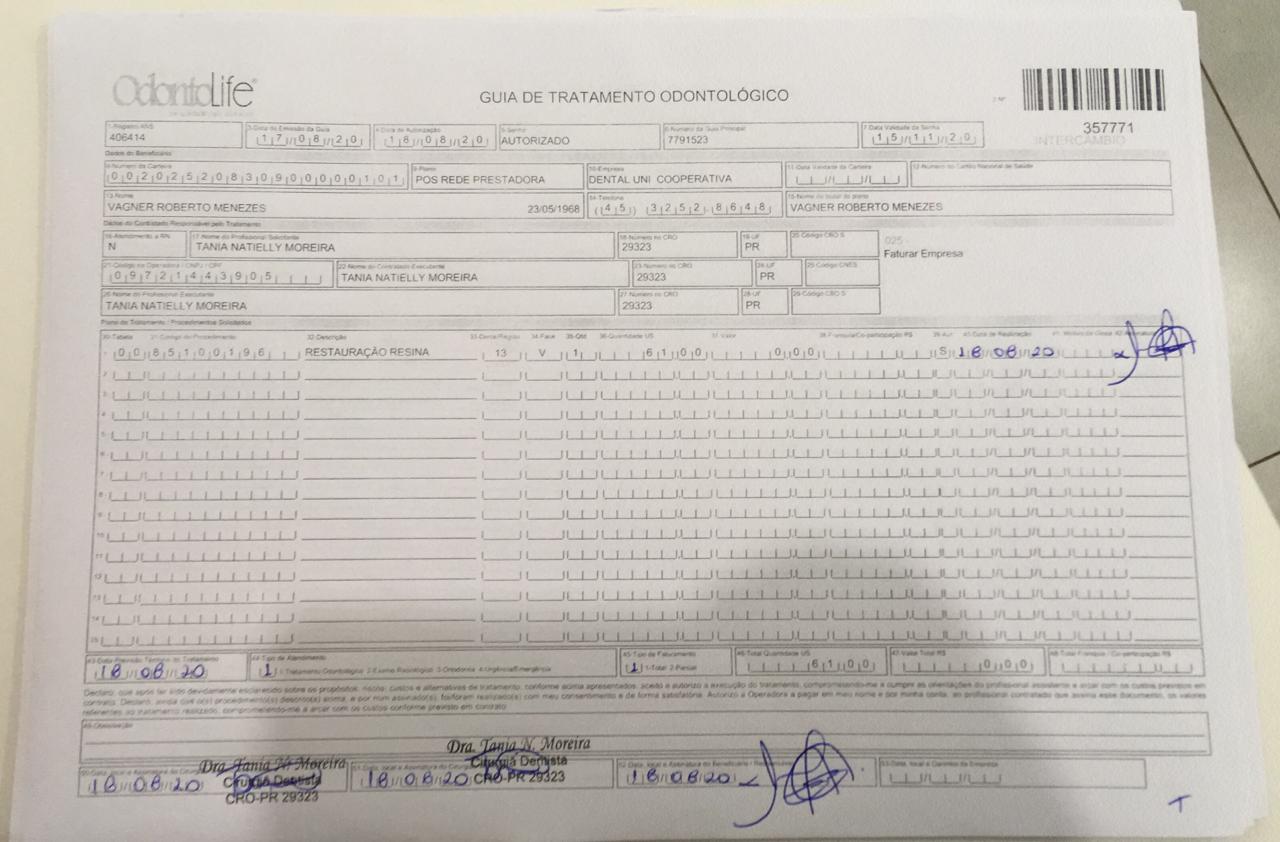 OdontoLife®
GUIA DE TRATAMENTO ODONTOLÓGICO
2 Nº
357771
INTERCÂMBIO
1-Registro ANS 3-Data de Emissão da Guia 4-Data de Autorização 5-Senha 6-Número da Guia Principal 7-Data Validade da Senha
406414 17/08/20 18/08/20 AUTORIZADO 7791523 15/11/20
Dados do Beneficiário
8-Número da Carteira 9-Plano 10-Empresa 11-Data Validade da Carteira 12-Número do Cartão Nacional de Saúde
00202520830900000101 POS REDE PRESTADORA DENTAL UNI COOPERATIVA
13-Nome 14-Telefone 15-Nome do titular do plano
VAGNER ROBERTO MENEZES 23/05/1968 (45) 3252-8648 VAGNER ROBERTO MENEZES
Dados do Contratado Responsável pelo Tratamento
16-Atendimento a RN 17-Nome do Profissional Solicitante 18-Número no CRO 19-UF 20-Código CBO S
N TANIA NATIELLY MOREIRA 29323 PR
025 -
Faturar Empresa
21-Código na Operadora / CNPJ / CPF 22-Nome do Contratado Executante 23-Número no CRO 24-UF 25-Código CNES
09721443905 TANIA NATIELLY MOREIRA 29323 PR
26-Nome do Profissional Executante 27-Número no CRO 28-UF 29-Código CBO S
TANIA NATIELLY MOREIRA 29323 PR
Plano de Tratamento / Procedimentos Solicitados
30-Tabela 31-Código do Procedimento 32-Descrição 33-Dente/Região 34-Face 35-Qtd 36-Quantidade US 37-Valor 38-Franquia/Co-participação R$ 39-Aut 40-Data de Realização
1- 00 85100196 RESTAURAÇÃO RESINA 13 V 1 61,00 0,00 S 18 08 20
2-
3-
4-
5-
6-
7-
8-
9-
10-
11-
12-
13-
14-
15-
43-Data Previsão Término do Tratamento 44-Tipo de Atendimento 45-Tipo de Faturamento 46-Total Quantidade US 47-Valor Total R$ 48-Total Franquia / Co-participação R$
18/08/20 1 1-Tratamento Odontológico 2-Exame Radiológico 3-Ortodontia 4-Urgência/Emergência 1 1-Total 2-Parcial 61,00 0,00
Declaro, que após ter sido devidamente esclarecido sobre os propósitos, riscos, custos e alternativas de tratamento, conforme acima apresentados, aceito e autorizo a execução do tratamento, comprometendo-me a cumprir as orientações do profissional assistente e arcar com os custos previstos em
contrato. Declaro, ainda que o(s) procedimento(s) descrito(s) acima, e por mim assinado(s), foi/foram realizado(s) com meu consentimento e de forma satisfatória. Autorizo a Operadora a pagar em meu nome e por minha conta, ao profissional contratado que assina esse documento, os valores
referentes ao tratamento realizado, comprometendo-me a arcar com os custos conforme previsto em contrato.
49-Observação
Dra. Tania N. Moreira
Cirurgiã Dentista
CRO-PR 29323
Dra. Tania N. Moreira
Cirurgiã Dentista
CRO-PR 29323
18/08/20 18/08/20 18/08/20
53-Data, local e Carimbo da Empresa
T